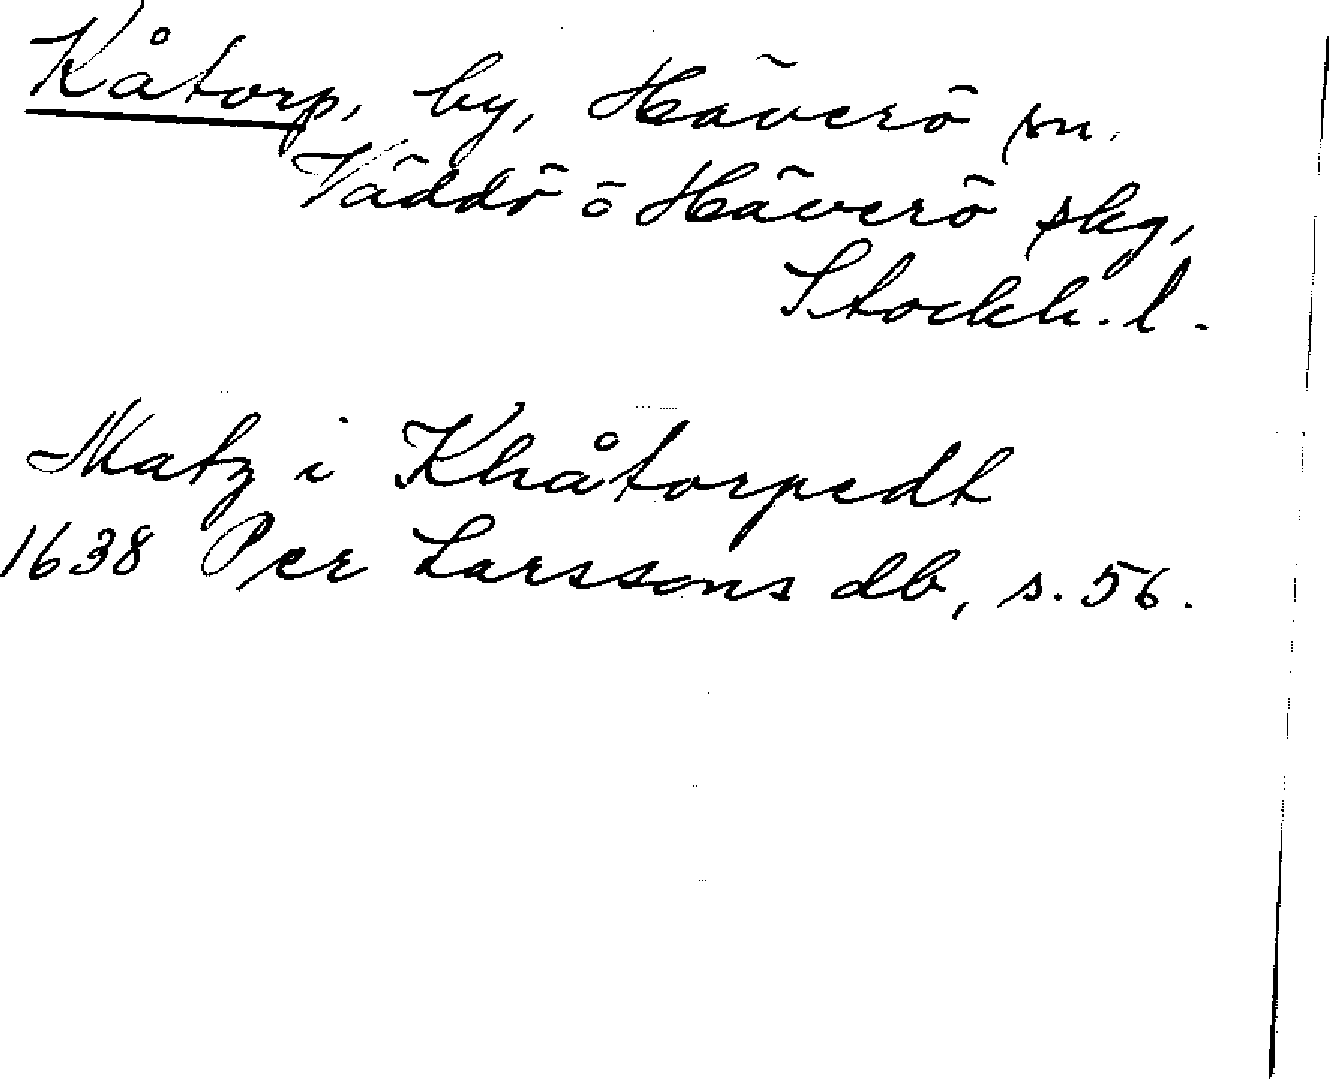 Kåtorp, by, Häverö sn.
Väddö o Häverö skg,
Stockh. l.
Matz i Khåtorpedt
1638 Per Larssons db, s. 56.